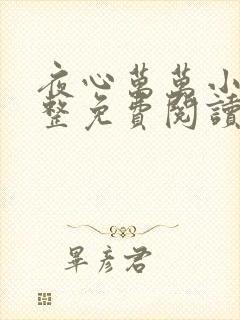 夜心萬萬小
整免費閱讀
畢彥君